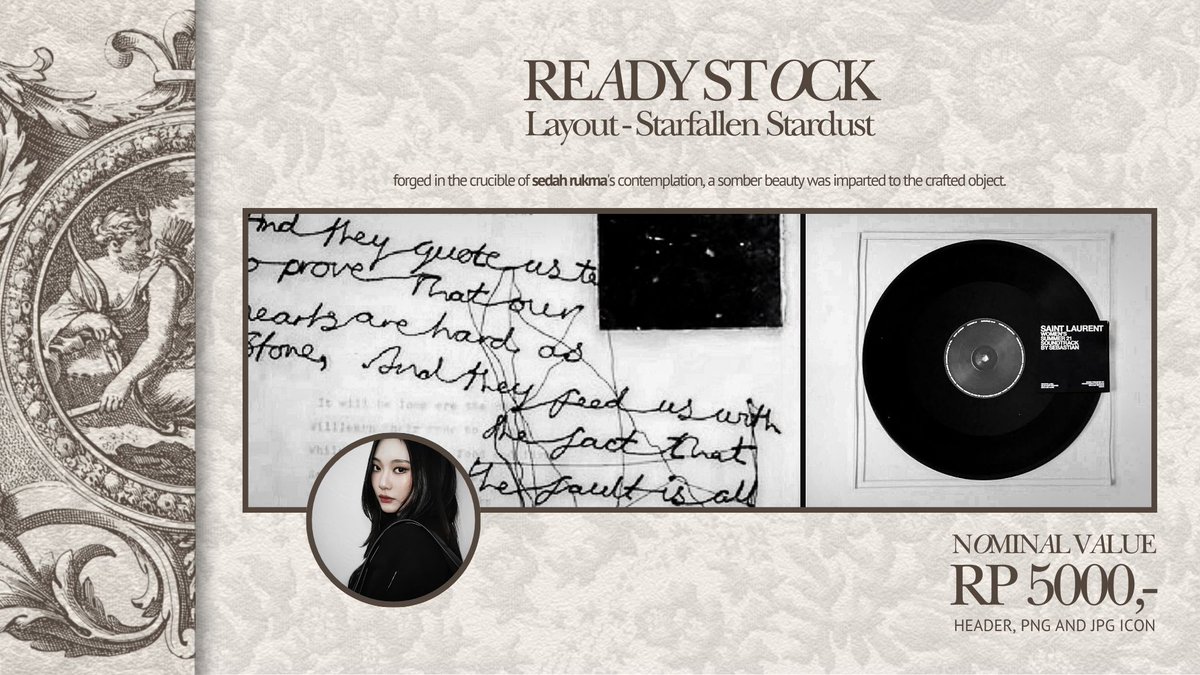 READY STOCK
Layout - Starfallen Stardust
forged in the crucible of sedah rukma's contemplation, a somber beauty was imparted to the crafted object.
And they quote us to
o prove That our
hearts are hard as
Stone, And they feed us with
the fact that
the fault is all
It will be long ere the
will learn
SAINT LAURENT
WOMEN'S
SUMMER 21
SOUNDTRACK
BY SEBASTIAN
NOMINAL VALUE
RP 5000,-
HEADER, PNG AND JPG ICON